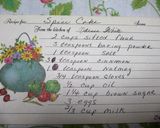 Recipe for: Spice Cake
From the kitchen of
2 cups sifted flour
3 teaspoons baking powder
1 teaspoon salt
1 teaspoon cinnamon
teaspoon nutmeg
3/4 teaspoon cloves
1/2 cup oil
1 1/4 cup brown sugar
3 eggs
1/3 cup milk